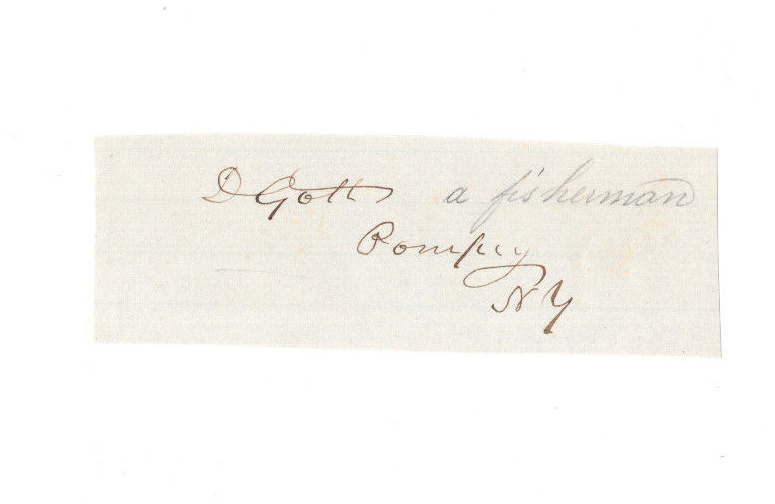 D Gott a fisherman
Pompey
NY